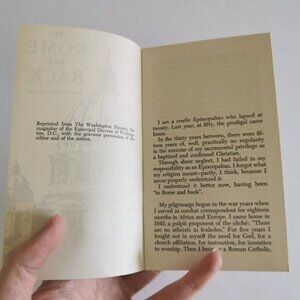 TO
ROME
AND
BACK
Reprinted from The Washington Diocese, the
magazine of the Episcopal Diocese of Washing-
ton, D.C., with the gracious permission of the
editor and of the author.
I am a cradle Episcopalian who lapsed at
twenty. Last year, at fifty, the prodigal came
home.
In the thirty years between, there were fif-
teen years of, well, practically no regularity
in the exercise of my sacramental privilege as
a baptized and confirmed Christian.
Through sheer neglect, I had failed in my
responsibility as an Episcopalian. I forgot what
my religion meant—partly, I think, because I
never properly understood it.
I understand it better now, having been
"to Rome and back".
My pilgrimage began in the war years when
I served as combat correspondent for eighteen
months in Africa and Europe. I came home in
1945, a pulpit proponent of the cliche: "There
are no atheists in foxholes." For five years I
fought out in myself the need for God, for a
church affiliation, for instruction, for incentive
to worship. Then I became a Roman Catholic.